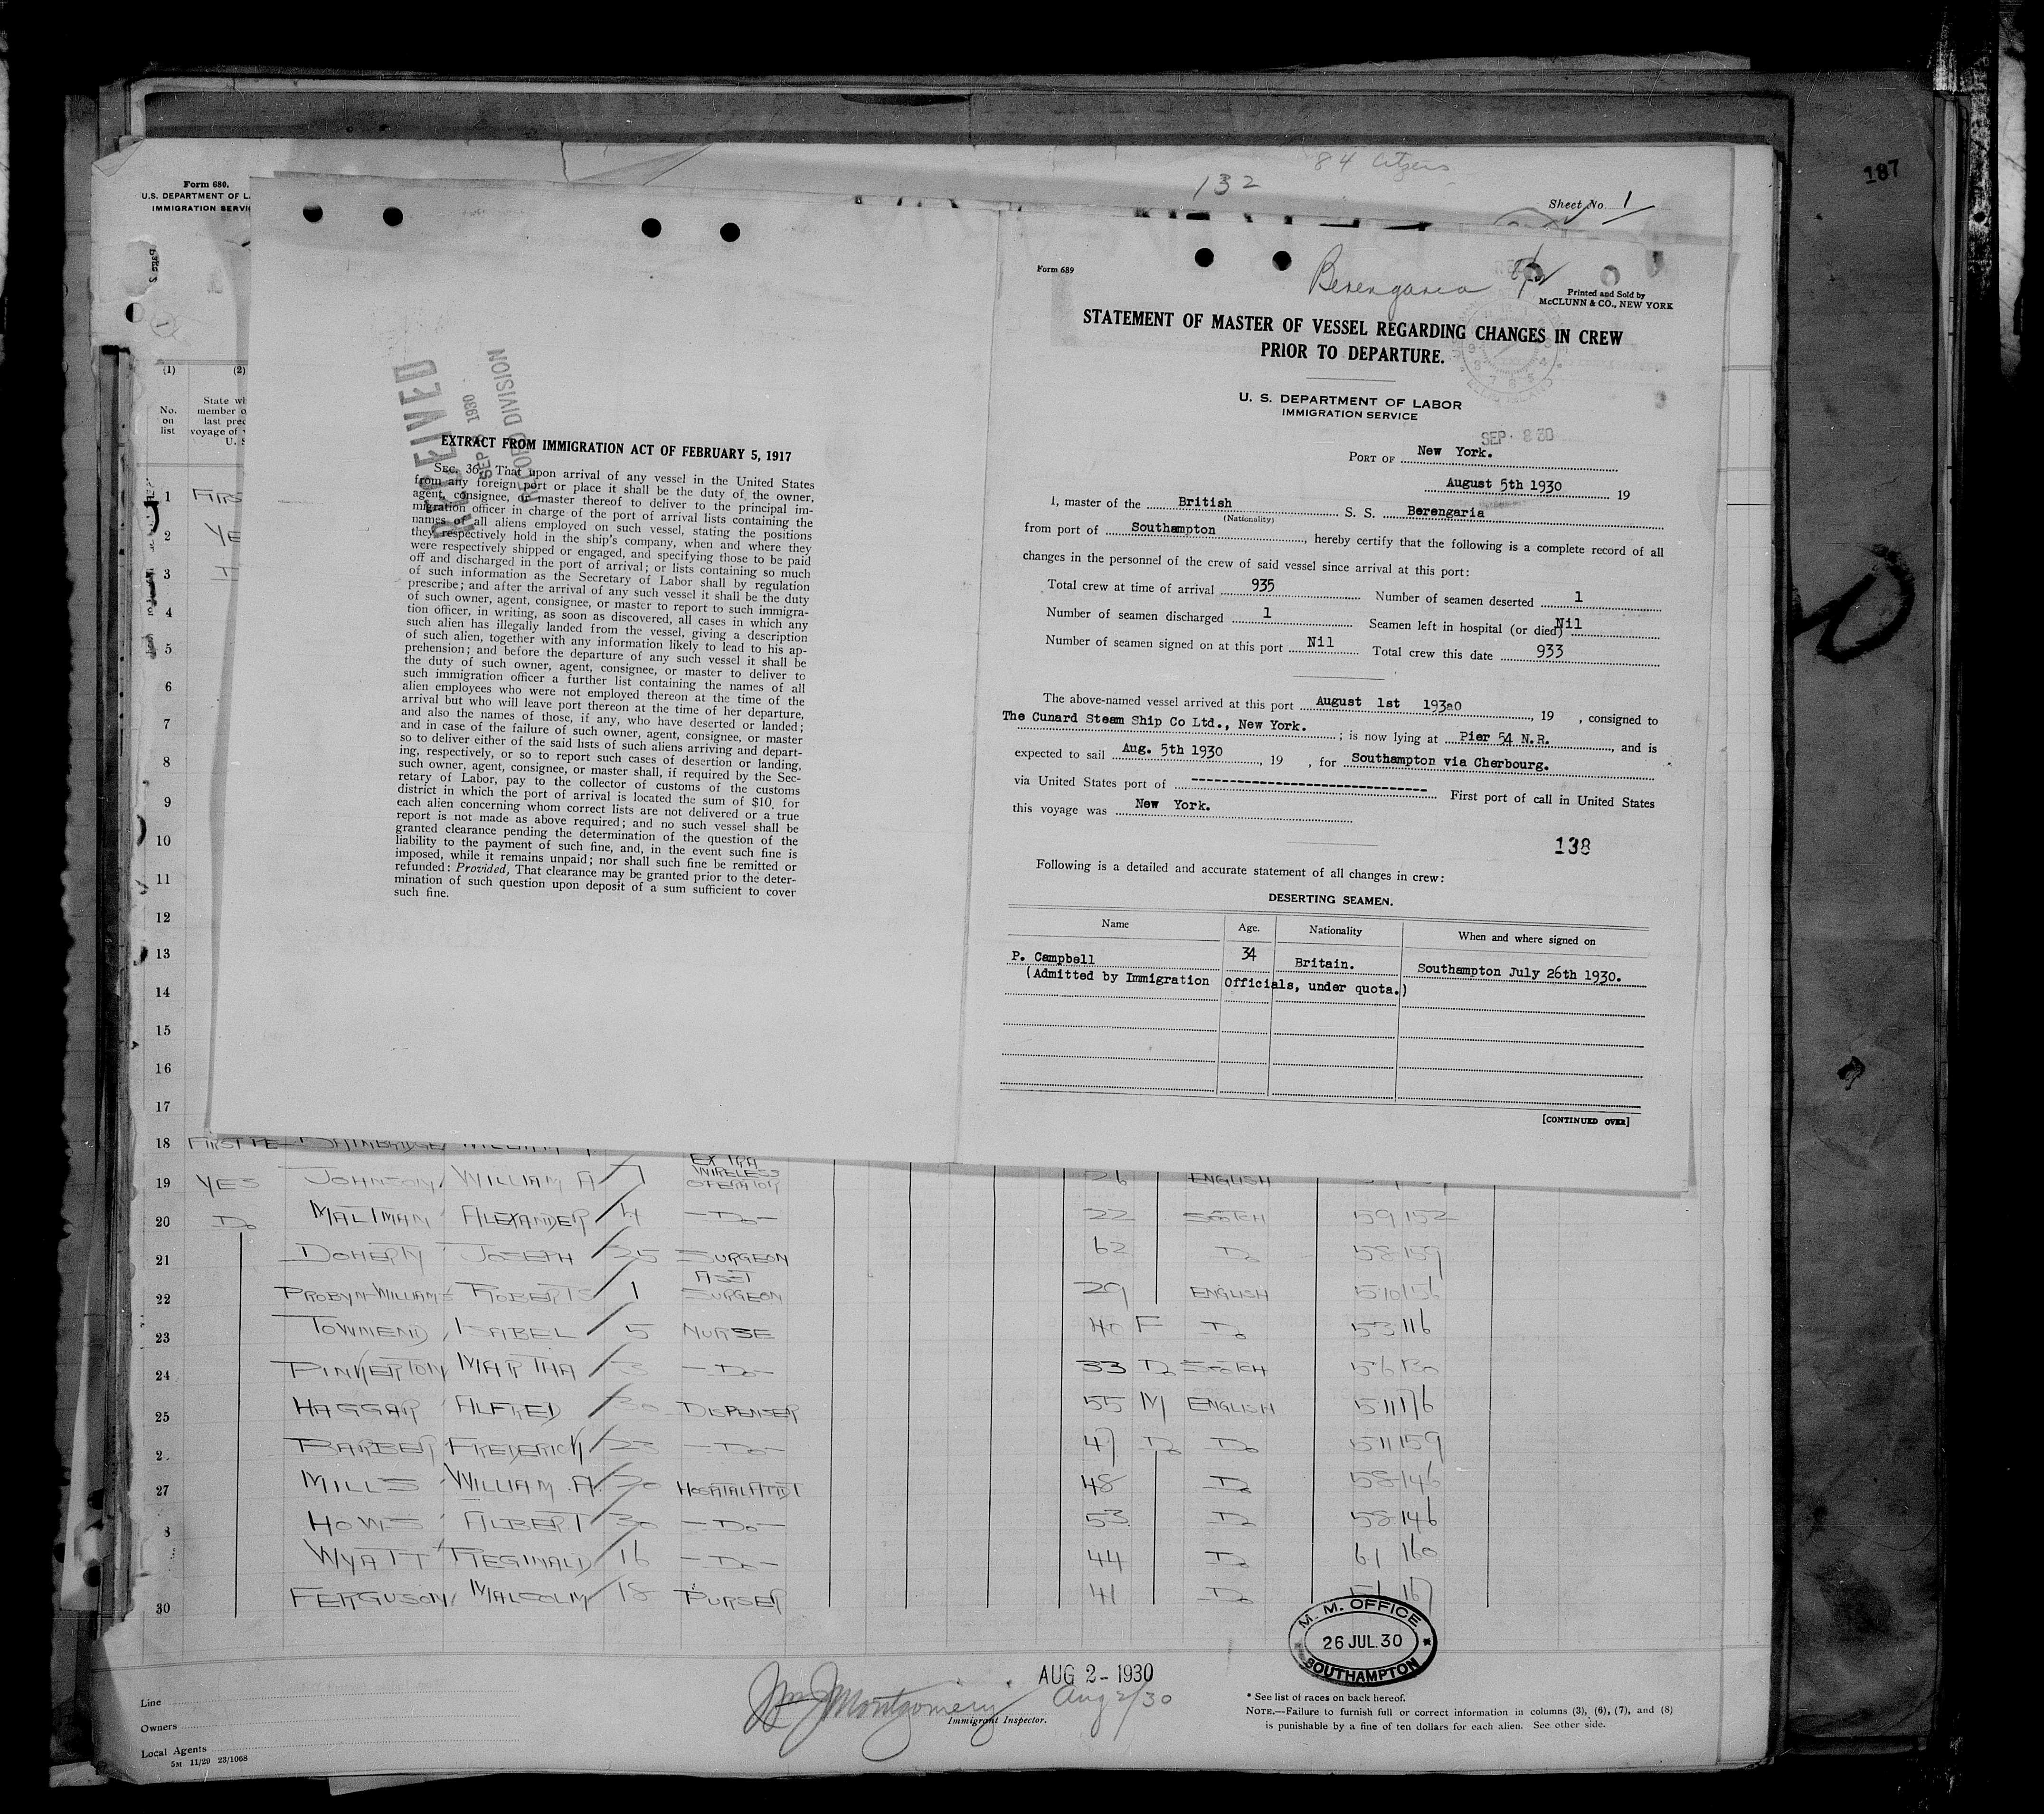 187
84 Citzens
132
Sheet No. 1
Form 680.
U.S. DEPARTMENT OF L
IMMIGRATION SERVI
(1)
(2)
No.
on
list
State wh
member o
last prec
voyage of
U. S
1
2
3
4
5
6
7
8
9
10
11
12
13
14
15
16
17
RECEIVED
SEP 1930
RECORD DIVISION
EXTRACT FROM IMMIGRATION ACT OF FEBRUARY 5, 1917
SEC. 36. That upon arrival of any vessel in the United States
from any foreign port or place it shall be the duty of the owner,
agent, consignee, or master thereof to deliver to the principal im-
migration officer in charge of the port of arrival lists containing the
names of all aliens employed on such vessel, stating the positions
they respectively hold in the ship's company, when and where they
were respectively shipped or engaged, and specifying those to be paid
off and discharged in the port of arrival; or lists containing so much
of such information as the Secretary of Labor shall by regulation
prescribe; and after the arrival of any such vessel it shall be the duty
of such owner, agent, consignee, or master to report to such immigra-
tion officer, in writing, as soon as discovered, all cases in which any
such alien has illegally landed from the vessel, giving a description
of such alien, together with any information likely to lead to his ap-
prehension; and before the departure of any such vessel it shall be
the duty of such owner, agent, consignee, or master to deliver to
such immigration officer a further list containing the names of all
alien employees who were not employed thereon at the time of the
arrival but who will leave port thereon at the time of her departure,
and also the names of those, if any, who have deserted or landed;
and in case of the failure of such owner, agent, consignee, or master
so to deliver either of the said lists of such aliens arriving and depart-
ing, respectively, or so to report such cases of desertion or landing,
such owner, agent, consignee, or master shall, if required by the Sec-
retary of Labor, pay to the collector of customs of the customs
district in which the port of arrival is located the sum of $10 for
each alien concerning whom correct lists are not delivered or a true
report is not made as above required; and no such vessel shall be
granted clearance pending the determination of the question of the
liability to the payment of such fine, and, in the event such fine is
imposed, while it remains unpaid; nor shall such fine be remitted or
refunded: Provided, That clearance may be granted prior to the deter-
mination of such question upon deposit of a sum sufficient to cover
such fine.
Form 689
Berengaria
Printed and Sold by
McCLUNN & CO., NEW YORK
STATEMENT OF MASTER OF VESSEL REGARDING CHANGES IN CREW
PRIOR TO DEPARTURE.
U. S. DEPARTMENT OF LABOR
IMMIGRATION SERVICE
SEP 8 30
PORT OF New York.
August 5th 1930 19
I, master of the British S. S. Berengaria
(Nationality)
from port of Southampton, hereby certify that the following is a complete record of all
changes in the personnel of the crew of said vessel since arrival at this port:
Total crew at time of arrival 935 Number of seamen deserted 1
Number of seamen discharged 1 Seamen left in hospital (or died) Nil
Number of seamen signed on at this port Nil Total crew this date 933
The above-named vessel arrived at this port August 1st 1930, 19 , consigned to
The Cunard Steam Ship Co Ltd., New York. ; is now lying at Pier 54 N.R., and is
expected to sail Aug. 5th 1930, 19 , for Southampton via Cherbourg.
via United States port of -------------------------------- First port of call in United States
this voyage was New York.
138
Following is a detailed and accurate statement of all changes in crew:
DESERTING SEAMEN.
Name Age. Nationality When and where signed on
P. Campbell 34 Britain. Southampton July 26th 1930.
(Admitted by Immigration Officials, under quota.)
[CONTINUED OVER]
18
19 YES JOHNSON WILLIAM A 7 EXTRA WIRELESS OPERATOR 26 ENGLISH
20 Do MALTMAN ALEXANDER 4 -Do- 22 SCOTCH 59 152
21 DOHERTY JOSEPH 25 SURGEON 62 Do 58 159
22 PROBYN-WILLIAMS ROBERT S 1 ASST SURGEON 29 ENGLISH 510 156
23 TOWNEND ISABEL 5 NURSE 40 F Do 53 116
24 PINKERTON MARTHA 3 -Do- 33 Do SCOTCH 56 130
25 HAGGAR ALFRED 30 DISPENSER 55 M ENGLISH 511 176
2 BARBER FREDERICK 23 -Do- 47 Do Do 511 159
27 MILLS WILLIAM.A. 20 HOSPITAL ATTDT 48 Do 58 146
8 HOWS ALBERT 30 -Do- 53 Do 58 146
WYATT REGINALD 16 -Do- 44 Do 61 160
30 FERGUSON MALCOLM 18 PURSER 41 Do
M. M. OFFICE
26 JUL. 30
SOUTHAMPTON
AUG 2 - 1930
Wm J Montgomery Aug 2/30
Immigrant Inspector.
Line
Owners
Local Agents
5M 11/29 23/1068
* See list of races on back hereof.
NOTE.—Failure to furnish full or correct information in columns (3), (6), (7), and (8)
is punishable by a fine of ten dollars for each alien. See other side.